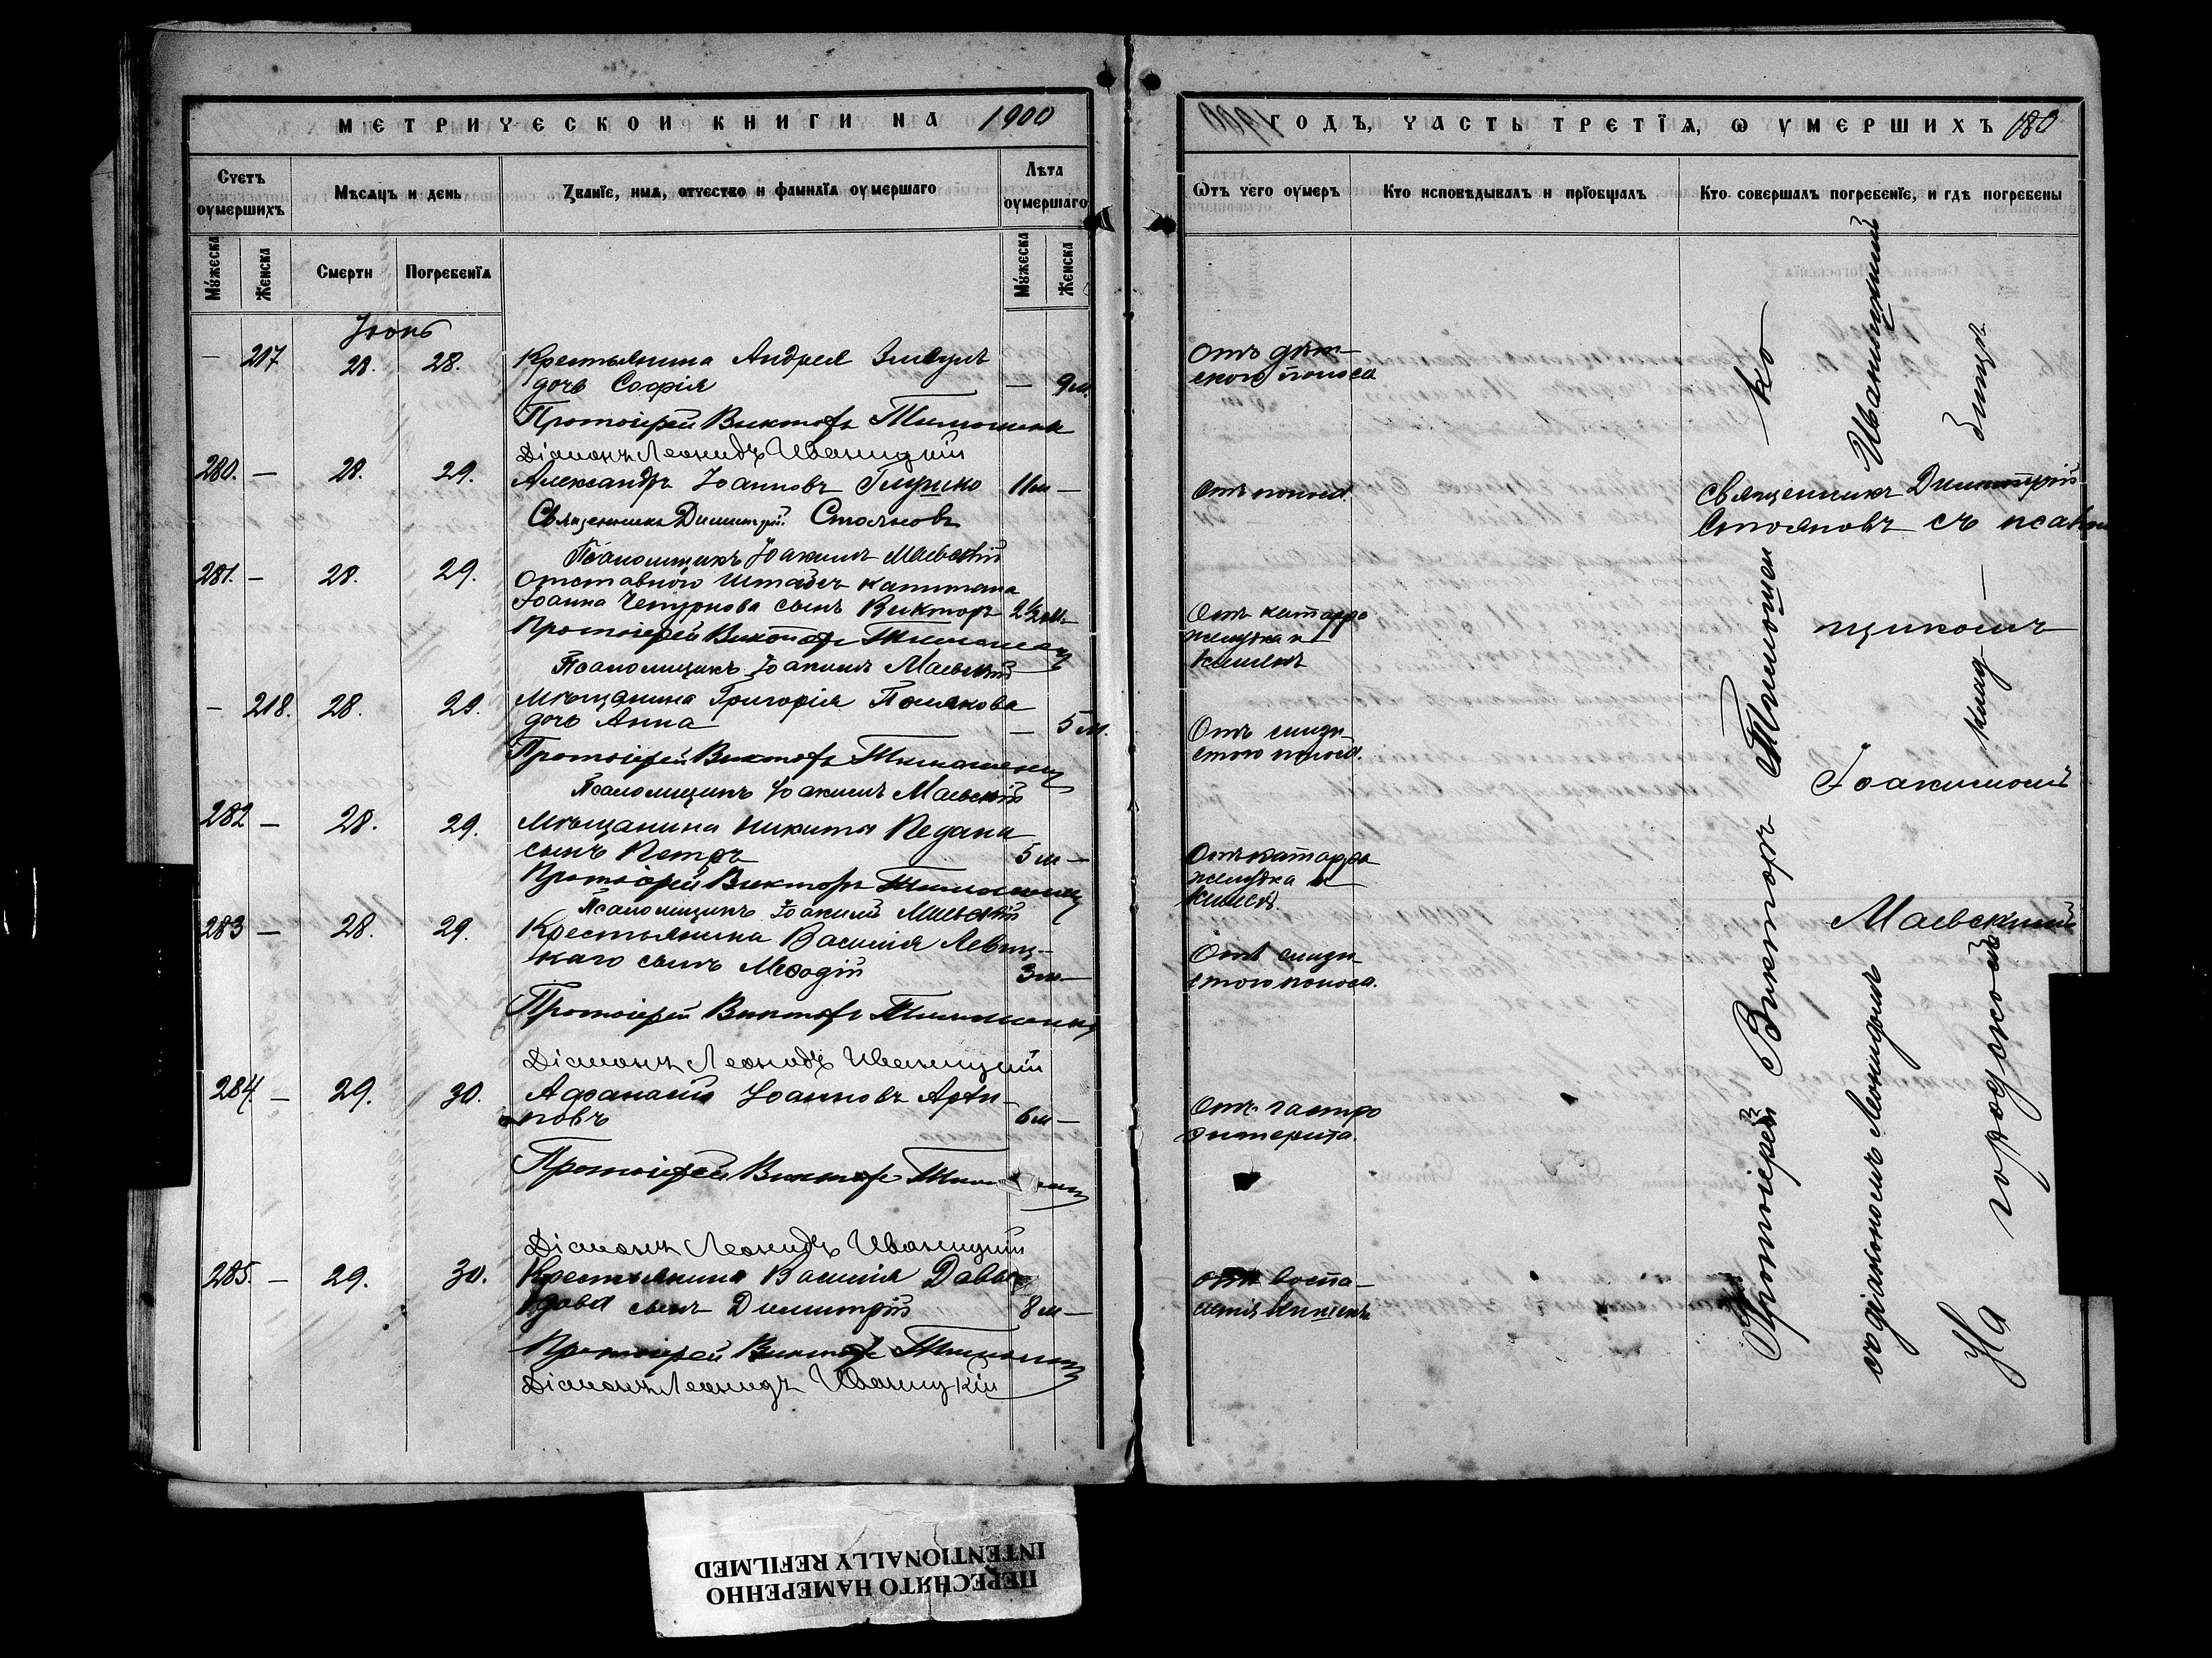 МЕТРИЧЕСКОЙ КНИГИ НА 1900
Счетъ оумершихъ
Мѣсяцъ и день
Званїе, имя, отчество и фамилїя оумершаго
Лѣта оумершаго
Мужеска
Женска
Смерти
Погребенїя
Мужеска
Женска
Іюнь
— 217 28. 28. Крестьянина Андрея
дочь Софія — 9 м.
Протоіерей Викторъ Тимошенко
Діаконъ Леонидъ Иваницкій
280. — 28. 29. Александръ Іоанновъ 11 м —
Священникъ Димитрій Стояновъ
Псаломщикъ Іоакимъ Маевскій
281. — 28. 29. Отставного Штабсъ капитана
Іоанна Чемурнова сынъ Викторъ 2½ м. —
Протоіерей Викторъ Тимошенко
Псаломщикъ Іоакимъ Маевскій
— 218. 28. 29. Мѣщанина Григорія Полякова
дочь Анна — 5 м.
Протоіерей Викторъ Тимошенко
Псаломщикъ Іоакимъ Маевскій
282 — 28. 29. Мѣщанина Никиты Педана
сынъ Петръ 5 м —
Протоіерей Викторъ Тимошенко
Псаломщикъ Іоакимъ Маевскій
283 — 28. 29. Крестьянина Василія Левиц-
каго сынъ Меѳодій 3 м. —
Протоіерей Викторъ Тимошенко
Діаконъ Леонидъ Иваницкій
284. — 29. 30. Афанасій Іоанновъ
новъ 6 м —
Протоіерей Викторъ
Діаконъ Леонидъ Иваницкій
285. — 29. 30. Крестьянина Василія Давы-
дова сынъ Димитрій 8 м —
Протоіерей Викторъ Тимошенко
Діаконъ Леонидъ Иваницкій
1900
ГОДЪ, ЧАСТЬ ТРЕТЇЯ, Ѡ ОУМЕРШИХЪ 180
Ѿтъ чего оумеръ
Кто исповѣдывалъ и прїобщалъ
Кто совершалъ погребенїе, и гдѣ погребены
Отъ дѣт-
скаго поноса
Отъ поноса.
Отъ катарра
желудка и
кишекъ
Отъ слизи-
стого поноса.
Отъ катарра
желудка и
кишекъ.
Отъ слизи-
стого поноса.
Отъ гастро
энтерита.
отъ воспа-
ленія кишекъ
Священникъ Димитрій
Стояновъ съ псалом
щикомъ
Іоакимомъ
Маевскимъ
Протоіерей Викторъ Тимошен — ко
съ діакономъ Леонидомъ Иваницкимъ
На городскомъ клад — бищѣ
ПЕРЕСНЯТО НАМЕРЕННО
INTENTIONALLY REFILMED